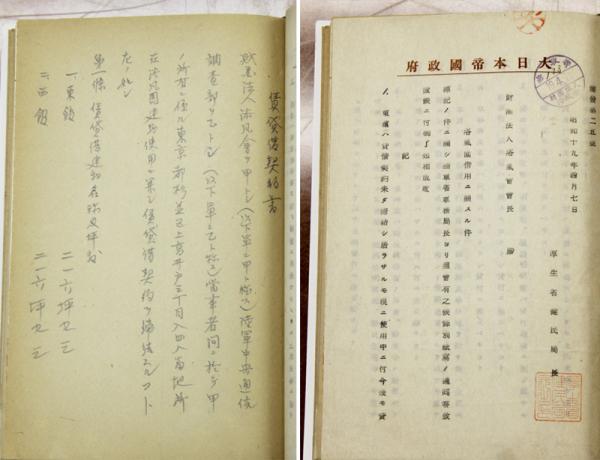 賃貸借契約書
財團法人浴風會ヲ甲トシ(以下單ニ甲ト称ス)陸軍中央通信
調査部ヲ乙トシ(以下單ニ乙ト称ス)當事者間ニ於テ甲
ノ所有ニ係ル東京都杉並區上高井戸三丁目八四八番地所
在浴風園建物使用ニ関シ賃貸借契約ヲ締結スルコト
左ノ如シ
第一條 賃貸借建物
一、東館 二一六坪九三
二、西館 二一六坪九三
大日本帝國政府
第二五號
昭和十九年四月七日
厚生省健民局長
財團法人浴風會會長 殿
浴風園借用ニ關スル件
標記ノ件ニ關シ陸軍省軍務局長ヨリ照會有之候條別紙寫ノ通回答致
置候ニ付御了知相成度
記
1、東館ハ賃借契約未ダ締結シ居ラザルモ現ニ使用中ニ付今後モ賃